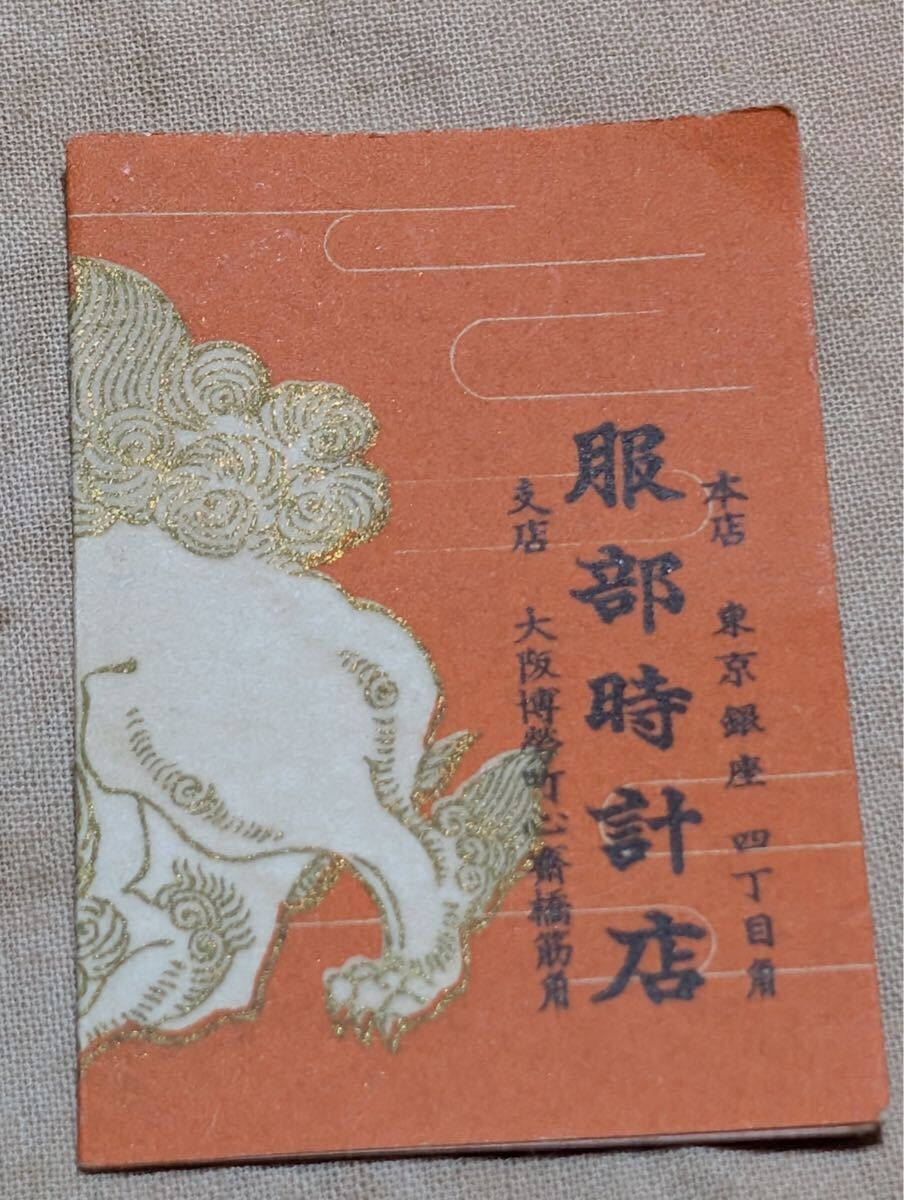 本店 東京銀座 四丁目角
服部時計店
支店 大阪博勞町心齋橋筋角